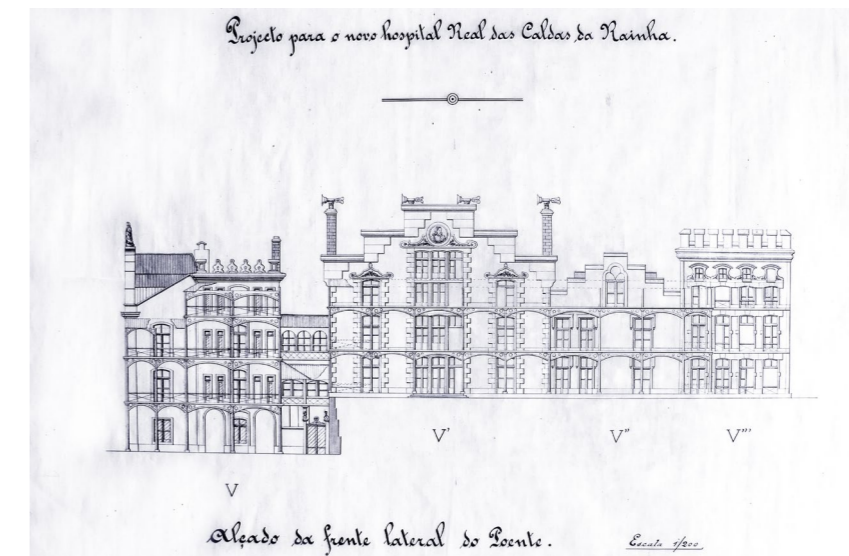 Projecto para o novo hospital Real das Caldas da Rainha.
V' V" V"'
V
Alçado da frente lateral do Poente.
Escala 1/200